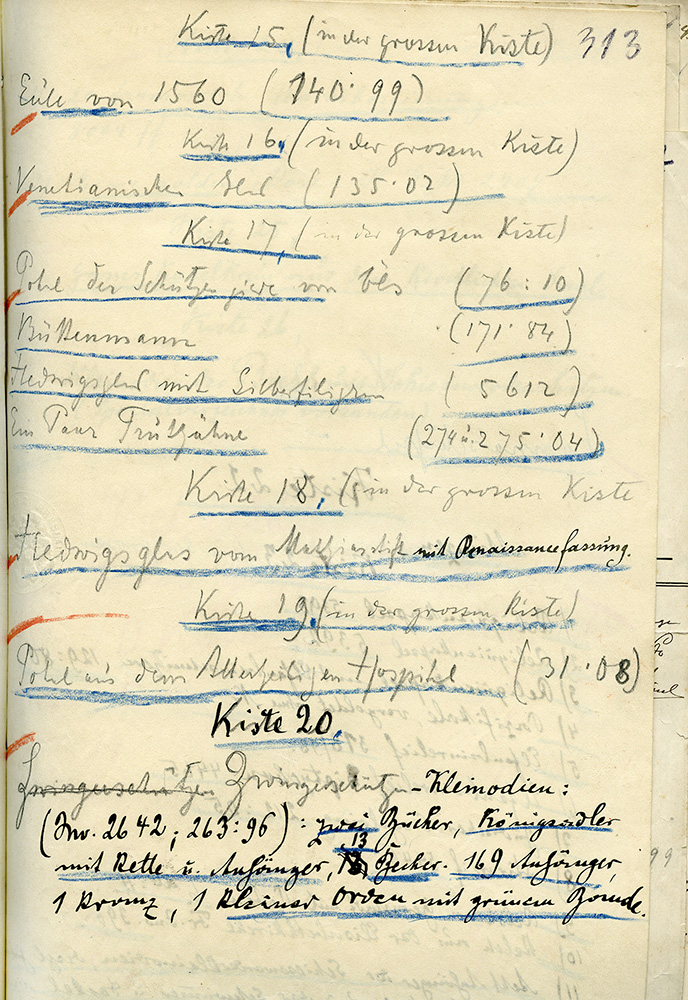 Kiste 15, (in der grossen Kiste) 313
Eule von 1560 (140·99)
Kiste 16, (in der grossen Kiste)
Venetianisches (135·02)
Kiste 17, (in der grossen Kiste)
Pokal der Schützen von Oels (76:10)
Büttenmann (171·84)
Hedwigsglas mit Silberfiligran (5612)
Ein Paar Truthähne (274 u. 275·04)
Kiste 18, (in der grossen Kiste
Hedwigsglas vom Matthiasstift mit Renaissancefassung.
Kiste 19, (in der grossen Kiste)
Pokal aus dem Allerheiligen Hospital (31·08)
Kiste 20.
Zwingerschützen Zwingerschützen-Kleinodien:
(Inv. 2642; 263:96): zwei Bücher, Königsadler
mit Kette u. Anhänger, 13 Becher. 169 Anhänger,
1 Kranz, 1 kleiner Orden mit grünem Bande.
99